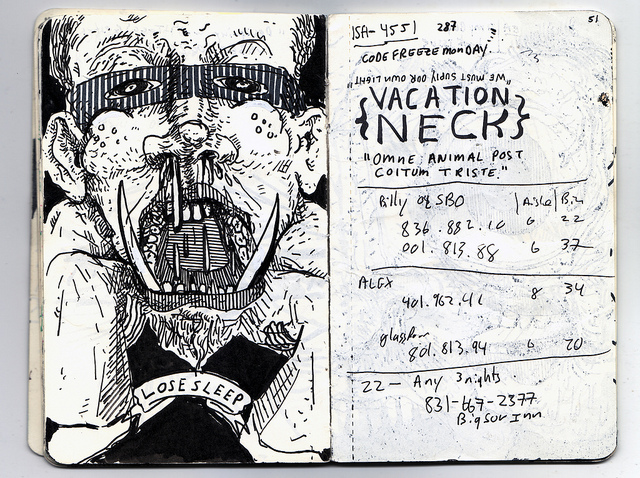 LOSE SLEEP
ISA-4551 287 51
CODE FREEZE MONDAY.
"WE MUST SUPLY OUR OWN LIGHT"
{VACATION
NECK}
"OMNE ANIMAL POST
COITUM TRISTE."
Billy og SBO | Aisle | Bin
836.882.10 6 22
001.813.88 6 37
ALEX
401.962.41 8 34
glasgow
801.813.94 6 20
22 — Any 3 nights
831-667-2377
Big Sur Inn